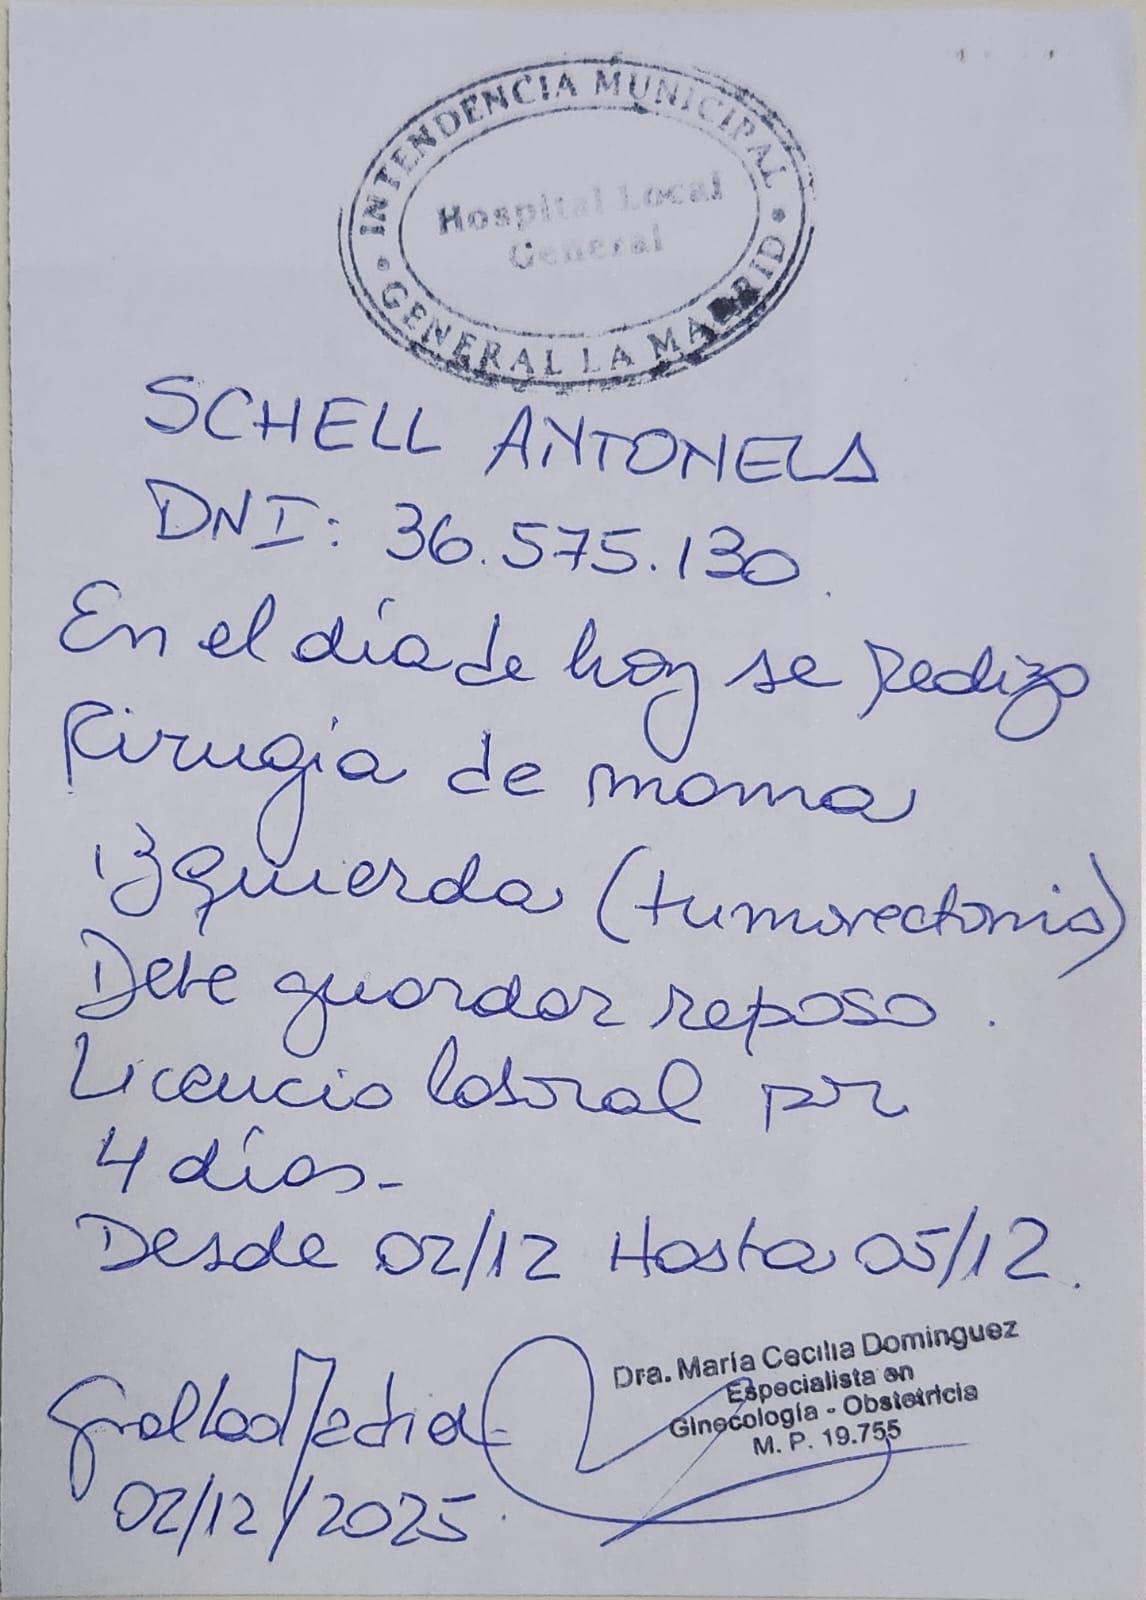 INTENDENCIA MUNICIPAL
Hospital Local
General
GENERAL LA MADRID
SCHELL ANTONELA
DNI: 36.575.130.
En el día de hoy se realizo
Cirugia de mama
izquierda (tumorectomia)
Debe guardar reposo.
Licencia laboral por
4 días-
Desde 02/12 Hasta 05/12.
Gral Lad
02/12/2025.
Dra. María Cecilia Dominguez
Especialista en
Ginecología - Obstetricia
M. P. 19.755